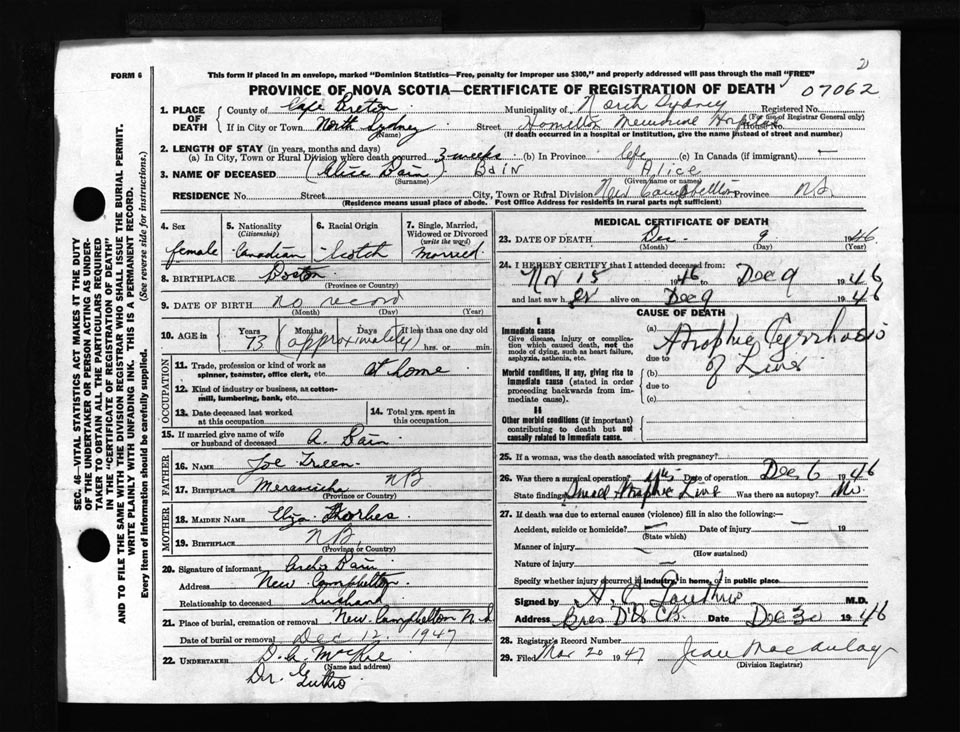 FORM 6
2
This form if placed in an envelope, marked "Dominion Statistics—Free, penalty for improper use $300," and properly addressed will pass through the mail "FREE"
PROVINCE OF NOVA SCOTIA—CERTIFICATE OF REGISTRATION OF DEATH
07062
1. PLACE OF DEATH
County of Cape Breton
Municipality of North Sydney
Registered No.
(For use of Registrar General only)
If in City or Town North Sydney
(Name)
Street Hamilton Memorial Hospital House No.
(If death occurred in a hospital or institution, give the name instead of street and number)
2. LENGTH OF STAY (in years, months and days)
(a) In City, Town or Rural Division where death occurred 3 weeks (b) In Province life (c) In Canada (if immigrant) —
3. NAME OF DECEASED (Alice Bain) BAIN Alice
(Surname) (Given name or names)
RESIDENCE No. Street City, Town or Rural Division New Campbellton Province N.S
(Residence means usual place of abode. Post Office Address for residents in rural parts not sufficient)
4. Sex
female
5. Nationality
(Citizenship)
Canadian
6. Racial Origin
Scotch
7. Single, Married, Widowed or Divorced
(write the word)
Married
8. BIRTHPLACE Boston
(Province or Country)
9. DATE OF BIRTH no record
(Month) (Day) (Year)
10. AGE in
Years Months Days If less than one day old
73 (approximately) hrs. or min.
OCCUPATION
11. Trade, profession or kind of work as spinner, teamster, office clerk, etc. at home
12. Kind of industry or business, as cotton-mill, lumbering, bank, etc.
13. Date deceased last worked at this occupation
14. Total yrs. spent in this occupation
15. If married give name of wife or husband of deceased A. Bain
FATHER
16. NAME Joe Green
17. BIRTHPLACE NB
(Province or Country)
MOTHER
18. MAIDEN NAME Eliza Forbes
19. BIRTHPLACE N B
(Province or Country)
20. Signature of informant Bain
Address New Campbellton
Relationship to deceased husband
21. Place of burial, cremation or removal New Campbellton N.S
Date of burial or removal Dec 12, 1947
22. UNDERTAKER D.A. McKie
(Name and address)
Dr. Guthro
MEDICAL CERTIFICATE OF DEATH
23. DATE OF DEATH Dec 9 1946
(Month) (Day) (Year)
24. I HEREBY CERTIFY that I attended deceased from:
Nov 15 1946 to Dec 9 1946
and last saw her alive on Dec 9 1946
CAUSE OF DEATH
I
Immediate cause
Give disease, injury or complication which caused death, not the mode of dying, such as heart failure, asphyxia, asthenia, etc.
Morbid conditions, if any, giving rise to immediate cause (stated in order proceeding backwards from immediate cause).
II
Other morbid conditions (if important) contributing to death but not causally related to immediate cause.
(a) Atrophic Cyrrhosis of Liver
due to
(b)
due to
(c)
25. If a woman, was the death associated with pregnancy?
26. Was there a surgical operation? yes Date of operation Dec 6 1946
State findings Small Atrophic Liver Was there an autopsy? No.
27. If death was due to external causes (violence) fill in also the following:—
Accident, suicide or homicide? — Date of injury — 19
(State which)
Manner of injury —
(How sustained)
Nature of injury —
Specify whether injury occurred in industry, in home, or in public place.
Signed by M.D.
Address Bras D'Or CB. Date Dec 30 1946
28. Registrar's Record Number
29. Filed Mar 20 1947 Jean MacAulay
(Division Registrar)
SEC. 46—VITAL STATISTICS ACT MAKES IT THE DUTY
OF THE UNDERTAKER OR PERSON ACTING AS UNDER-
TAKER TO OBTAIN ALL THE PARTICULARS REQUIRED
IN THE "CERTIFICATE OF REGISTRATION OF DEATH"
AND TO FILE THE SAME WITH THE DIVISION REGISTRAR WHO SHALL ISSUE THE BURIAL PERMIT.
WRITE PLAINLY WITH UNFADING INK. THIS IS A PERMANENT RECORD.
Every item of information should be carefully supplied. (See reverse side for instructions.)